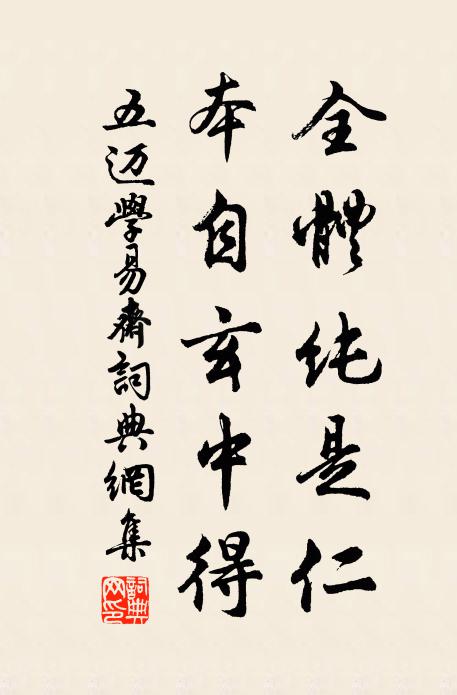 全體纯是仁
本自玄中得
五迈學易齋詞典網集
詞典网印